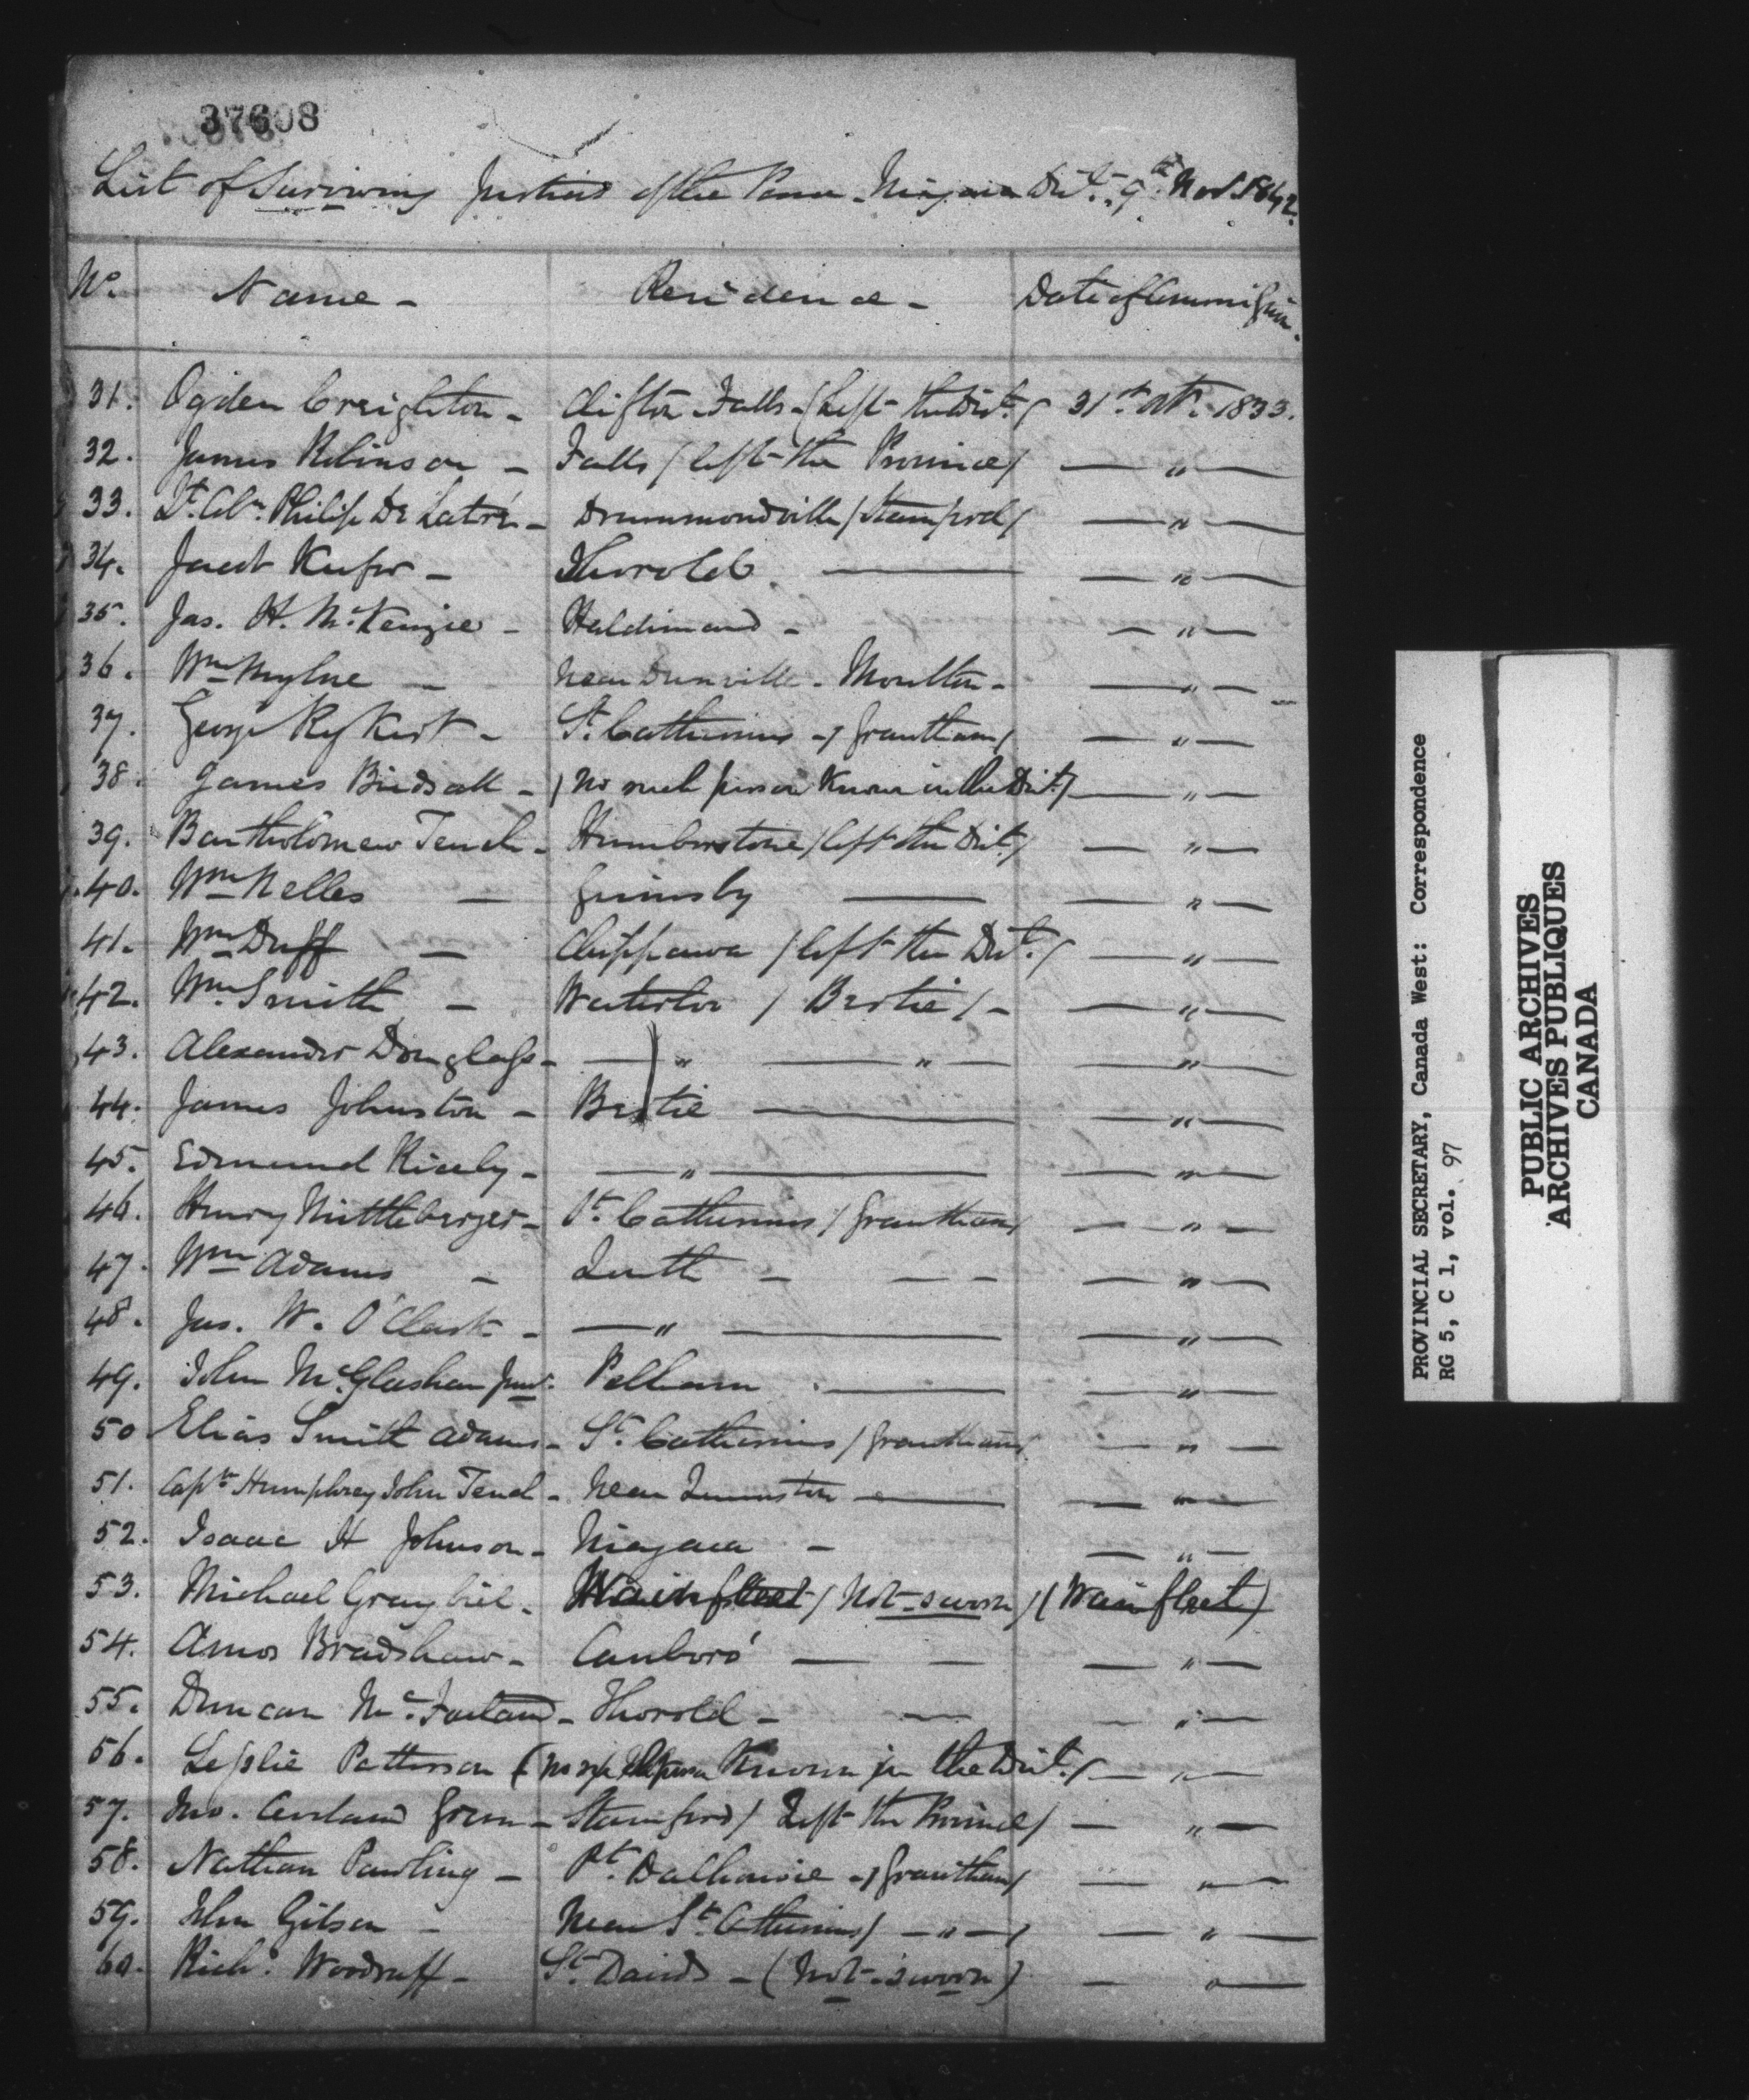 37608
List of Surviving Justices of the Peace - Niagara Dist. 9th Nov 1842.
No. Name - Residence - Date of Commission.
31. Ogden Creighton - Clifton Falls - (Left the Dist.) 31st Oct. 1833.
32. James Robinson - Falls / left the Province / — " —
33. Lt. Coln. Philip De Latré - Drummondville / Stamford / — " —
34. Jacob Keefer - Thorold. — — " —
35. Jas. H. McKenzie - Haldimand - — " —
36. Wm Mylne — near Dunnville - Moulton - — " —
37. George Rykert - St. Catherines - / Grantham / — " —
38. James Birdsall - / No such person Known in the Dist. / — " —
39. Bartholomew Tench - Humberstone / left the Dist. / — " —
40. Wm Nelles — Grimsby — — " —
41. Wm Duff — Chippawa / left the Dist. / — " —
42. Wm. Smith — Waterloo / Bertie / - — " —
43. Alexander Douglass - — " — " — — " —
44. James Johnston - Bertie — — " —
45. Edmund Riseley - — " — — " —
46. Henry Mittleberger - St. Catherines / Grantham / — " —
47. Wm Adams - Louth - — - — " —
48. Jas. W. O'Clark - — " — — " —
49. John McGlashan Junr. Pelham . — — " —
50 Elias Smith Adams - St. Catherines / Grantham / — " —
51. Capt. Humphrey John Tench - Near Queenston — — " —
52. Isaac H Johnson - Niagara - — " —
53. Michael Graybiel - Wainfleet / Not sworn / (Wainfleet)
54. Amos Bradshaw - Canboro' — — — " —
55. Duncan McFarland - Thorold - — — " —
56. Leslie Patterson ( no such person Known in the Dist. / — " —
57. Jno. Green - Stamford / Left the Province / — " —
58. Nathan Pawling - Pt. Dalhousie - / Grantham / — " —
59. John Gibson - Near St. Catherines / — " — / — " —
60. Richd. Woodruff - St. Davids - (Not sworn) — " —
PROVINCIAL SECRETARY, Canada West: Correspondence
RG 5, C 1, vol. 97
PUBLIC ARCHIVES
ARCHIVES PUBLIQUES
CANADA